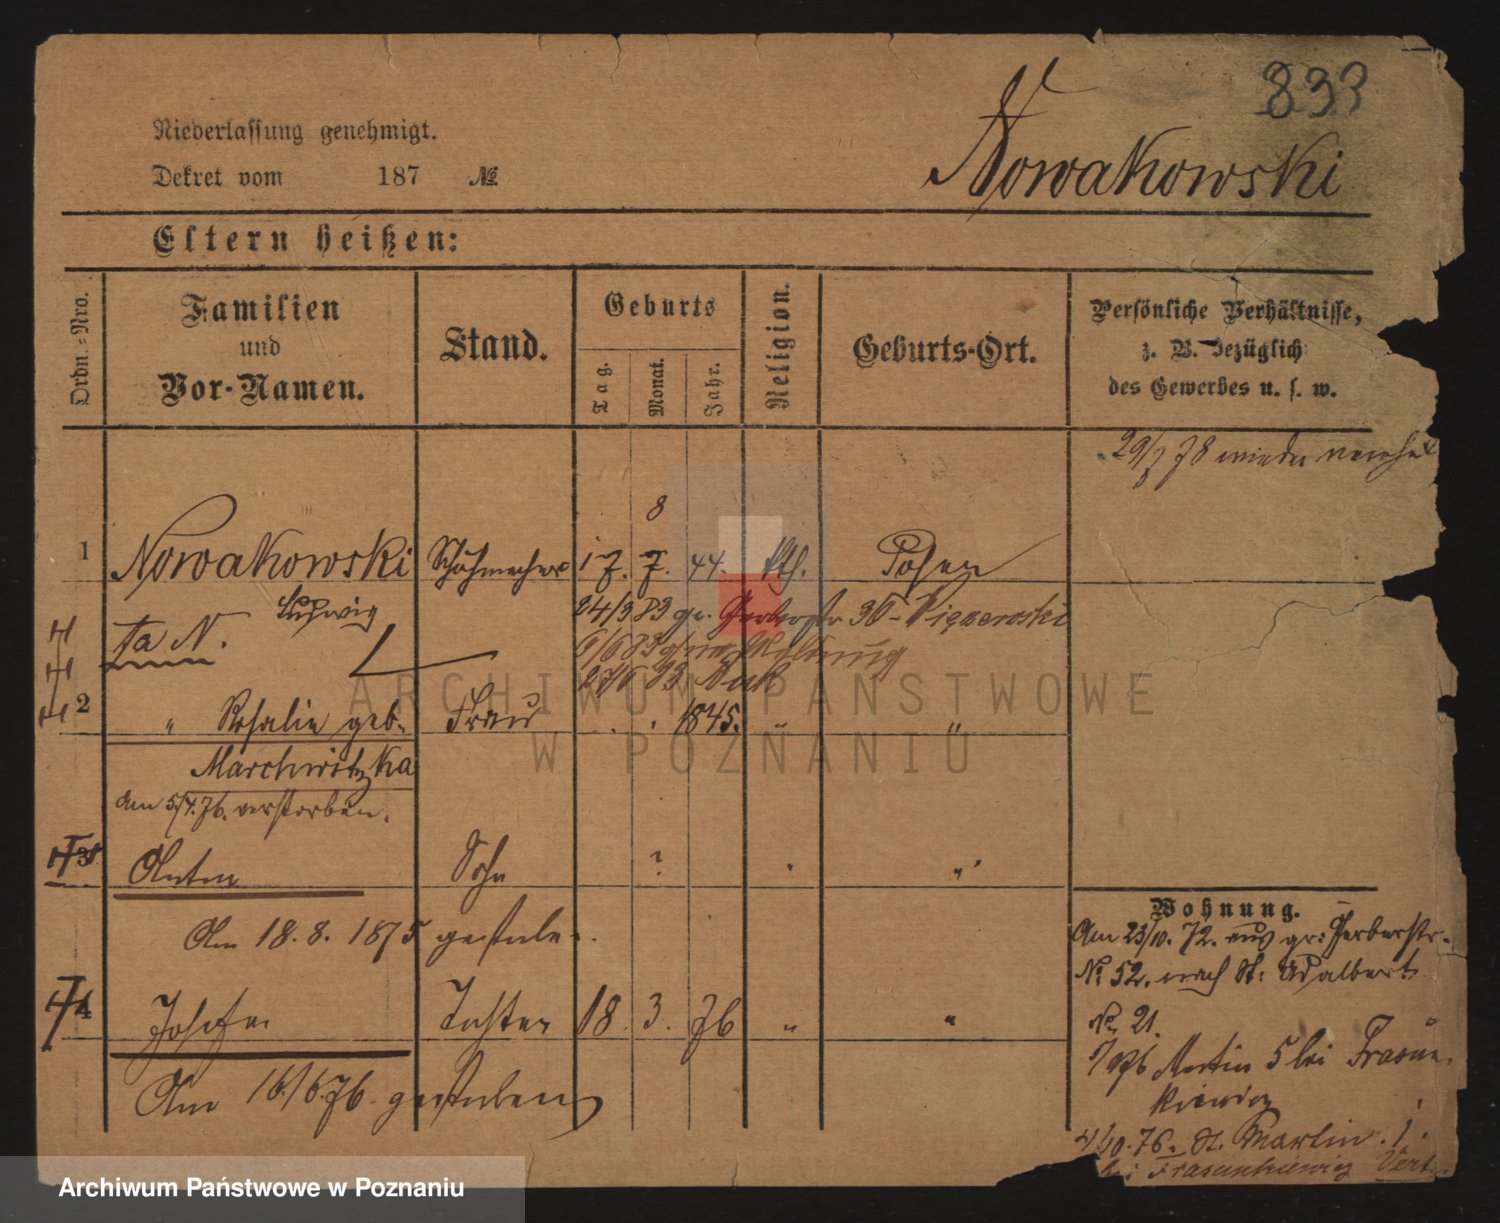 833
Nowakowski
Niederlassung genehmigt.
Dekret vom 187 №
Eltern heißen:
Ordn.-Nro.
Familien
und
Vor-Namen.
Stand.
Geburts
Tag.
Monat.
Jahr.
Religion.
Geburts-Ort.
Persönliche Verhältnisse,
z. B. bezüglich
des Gewerbes u. s. w.
78 wieder
8
1 Nowakowski Schuhmacher 17. 7. 44. kth. Posen
Ludwig
24/3 83 gr. Gerberstr. 36
ta N.
6/6 83
27/6 83
2 " Rosalie geb. Frau 1845. " "
Marchwitzka
am 5/4. 76. verstorben.
3 Anton Sohn ? "
Am 18. 8. 1875 gestorben.
4 Josefa Tochter 18. 3. 76 " "
Am 16/6. 76. gestorben
Wohnung.
Am 23/10. 72. aus gr: Gerberstr.
No 52. nach St: Adalbert
No. 21.
Martin 5 bei
10. 76. St. Martin. 1.
ARCHIWUM PAŃSTWOWE
W POZNANIU
Archiwum Państwowe w Poznaniu